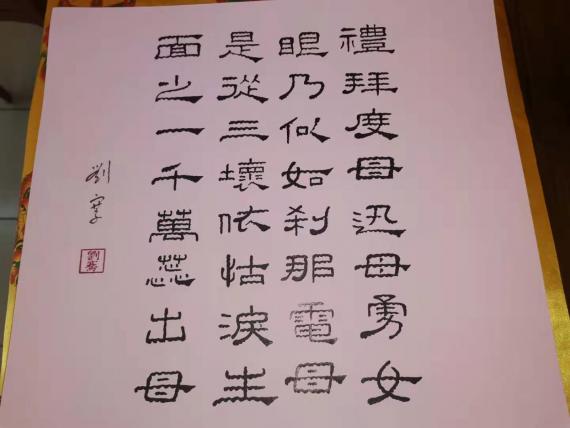 禮拜度母迅母勇女
眼乃似如刹那電母
是從三壞依怙淚生
面之一千萬蕊出母
劉
劉